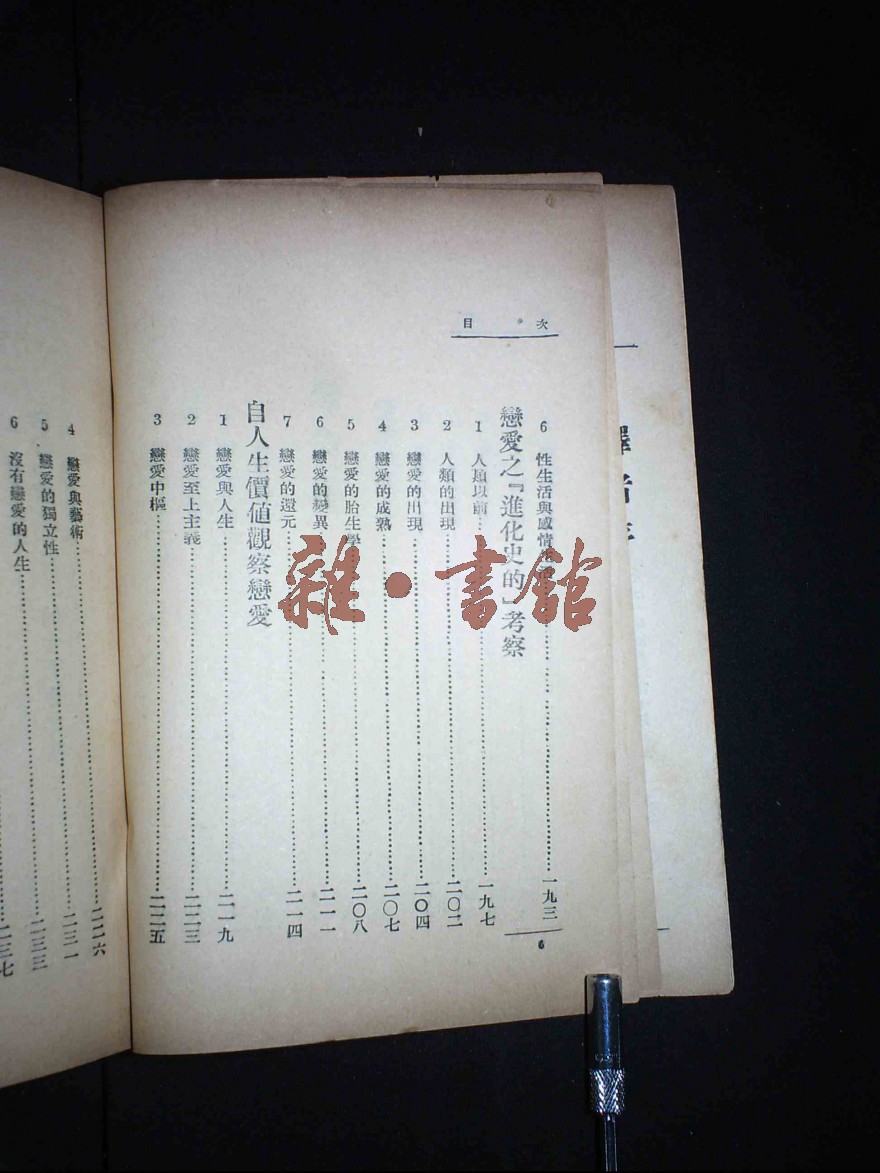 譯者
目・次
6 性生活與感情……一九三
戀愛之『進化史的』考察
1 人類以前……一九七
2 人類的出現……二〇二
3 戀愛的出現……二〇四
4 戀愛的成熟……二〇七
5 戀愛的胎生學……二〇八
6 戀愛的變異……二一一
7 戀愛的還元……二一四
自人生價値觀察戀愛
1 戀愛與人生……二一九
2 戀愛至上主義……二二三
3 戀愛中樞……二二五
6
4 戀愛與藝術……二二六
5 戀愛的獨立性……二三一
6 沒有戀愛的人生……二三三
二三七
雜・書館